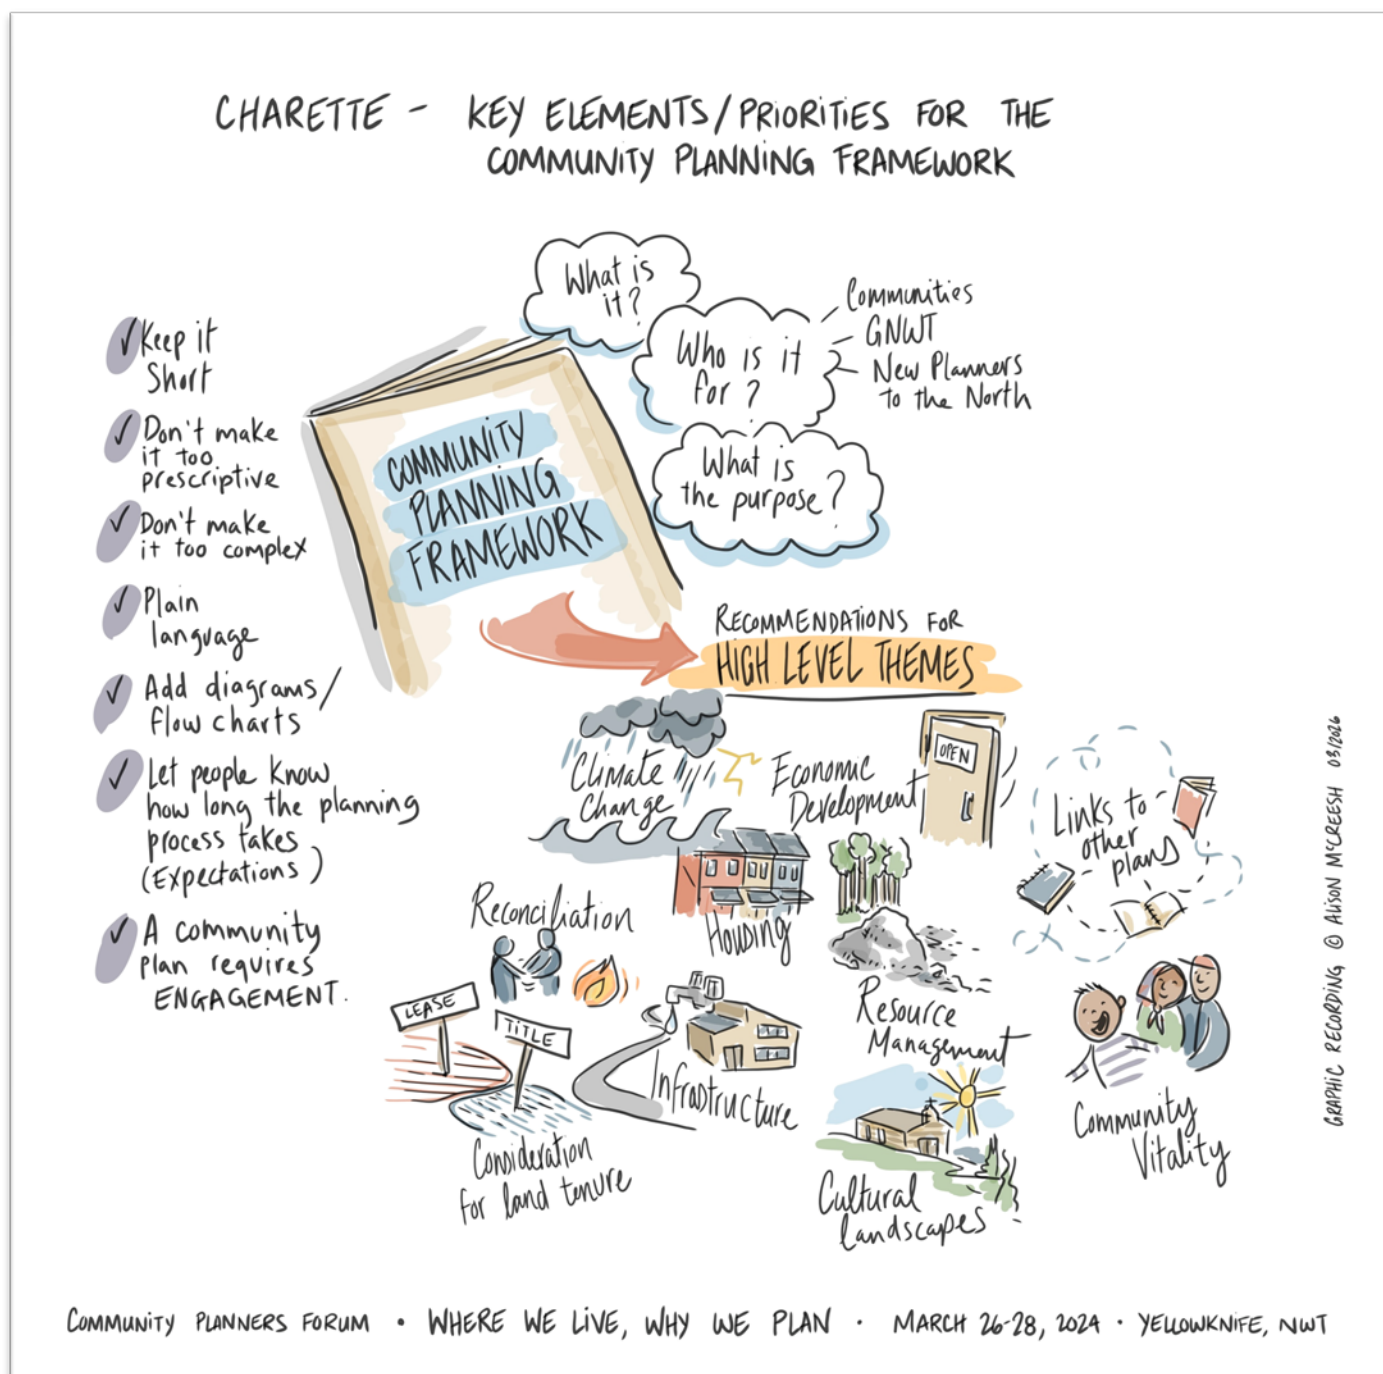 CHARETTE - KEY ELEMENTS/PRIORITIES FOR THE
COMMUNITY PLANNING FRAMEWORK
✓ Keep it
Short
✓ Don't make
it too
prescriptive
✓ Don't make
it too complex
✓ Plain
language
✓ Add diagrams/
flow charts
✓ Let people know
how long the planning
process takes
(Expectations)
✓ A community
plan requires
ENGAGEMENT.
COMMUNITY
PLANNING
FRAMEWORK
What is
it?
Who is it
for?
Communities
GNWT
New Planners
to the North
What is
the purpose?
RECOMMENDATIONS FOR
HIGH LEVEL THEMES
Climate
Change
Economic
Development
OPEN
Links to
other
plans
Reconciliation
Housing
LEASE
TITLE
Consideration
for land tenure
Infrastructure
Resource
Management
Cultural
landscapes
Community
Vitality
GRAPHIC RECORDING © ALISON MCCREESH 03/2026
COMMUNITY PLANNERS FORUM • WHERE WE LIVE, WHY WE PLAN • MARCH 26-28, 2024 • YELLOWKNIFE, NWT